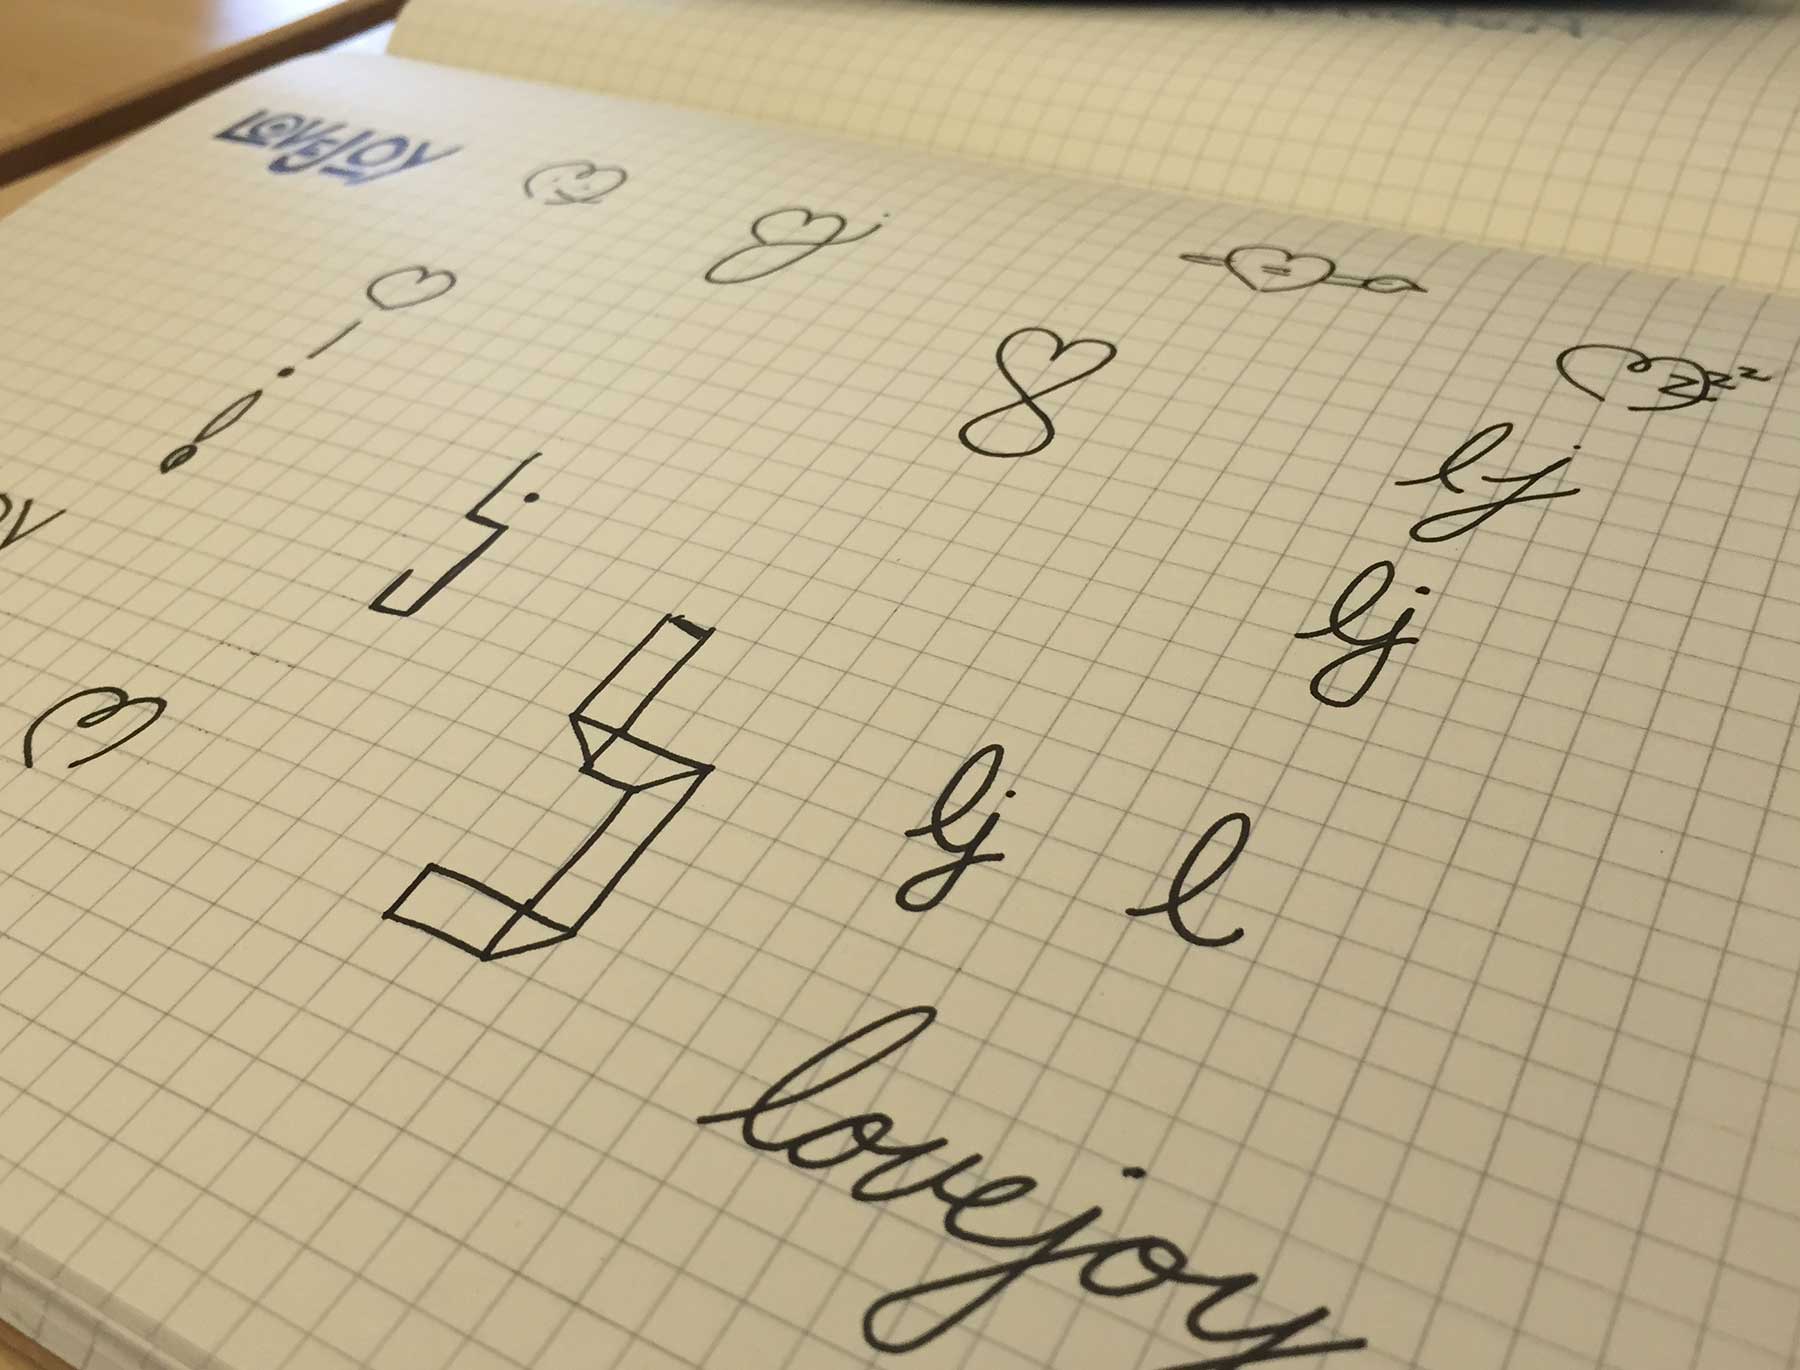 LOVEJOY
j
zzz
lj
oy
lj
lj l
lovejoy